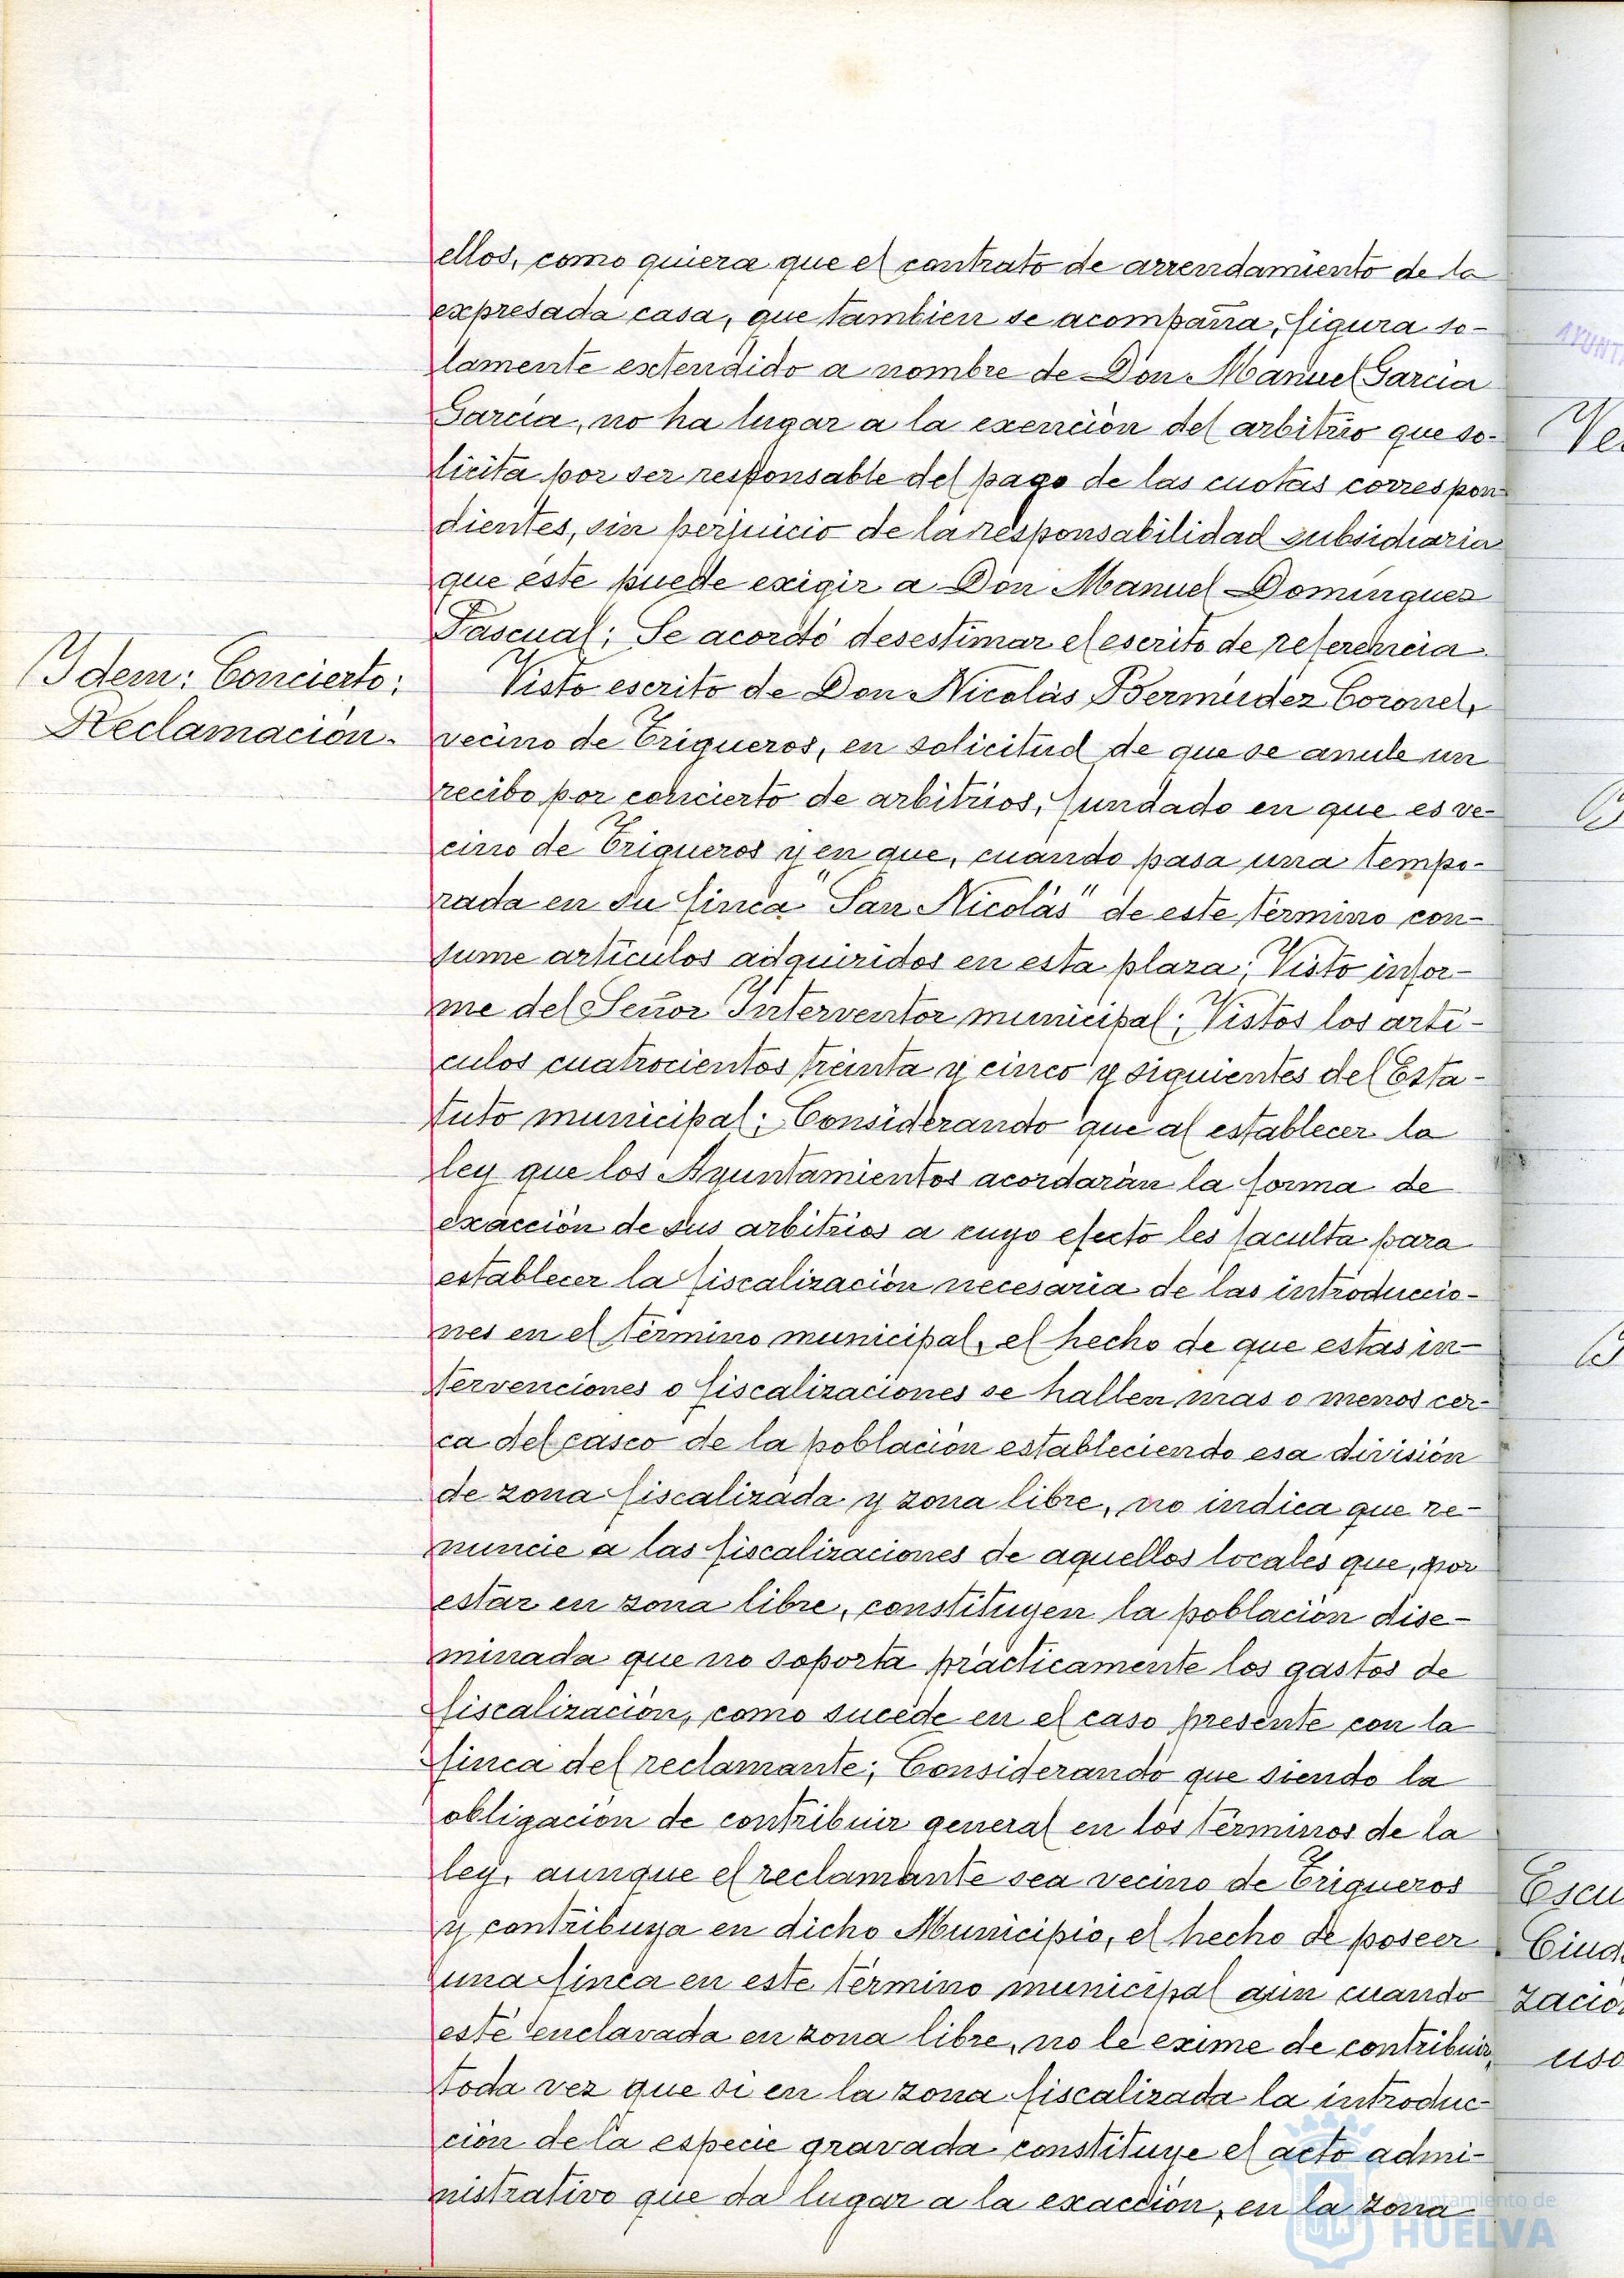 ellos, como quiera que el contrato de arrendamiento de la
expresada casa, que tambien se acompaña, figura so-
lamente extendido a nombre de Don Manuel Garcia
Garcia, no ha lugar a la exención del arbitrio que so-
licita por ser responsable del pago de las cuotas correspon
dientes, sin perjuicio de la responsabilidad subsidiaria
que éste puede exigir a Don Manuel Dominguez
Pascual; Se acordó desestimar el escrito de referencia.
Idem: Concierto:
Reclamación.
Visto escrito de Don Nicolás Bermúdez Coronel,
vecino de Trigueros, en solicitud de que se anule un
recibo por concierto de arbitrios, fundado en que es ve-
cino de Trigueros y en que, cuando pasa una tempo-
rada en su finca "San Nicolás" de este término con-
sume artículos adquiridos en esta plaza; Visto infor-
me del Señor Interventor municipal; Vistos los artí-
culos cuatrocientos treinta y cinco y siguientes del Esta-
tuto municipal; Considerando que al establecer la
ley que los Ayuntamientos acordarán la forma de
exacción de sus arbitrios a cuyo efecto les faculta para
establecer la fiscalización necesaria de las introduccio-
nes en el término municipal, el hecho de que estas in-
tervenciones o fiscalizaciones se hallen mas o menos cer-
ca del casco de la población estableciendo esa división
de zona fiscalizada y zona libre, no indica que re-
nuncie a las fiscalizaciones de aquellos locales que, por
estar en zona libre, constituyen la población dise-
minada que no soporta prácticamente los gastos de
fiscalización, como sucede en el caso presente con la
finca del reclamante; Considerando que siendo la
obligación de contribuir general en los términos de la
ley, aunque el reclamante sea vecino de Trigueros
y contribuya en dicho Municipio, el hecho de poseer
una finca en este término municipal aún cuando
esté enclavada en zona libre, no le exime de contribuir,
toda vez que si en la zona fiscalizada la introduc-
ción de la especie gravada constituye el acto admi-
nistrativo que da lugar a la exacción, en la zona
Ayuntamiento de
HUELVA
AYUNT
Escu
Ciud
zació
uso